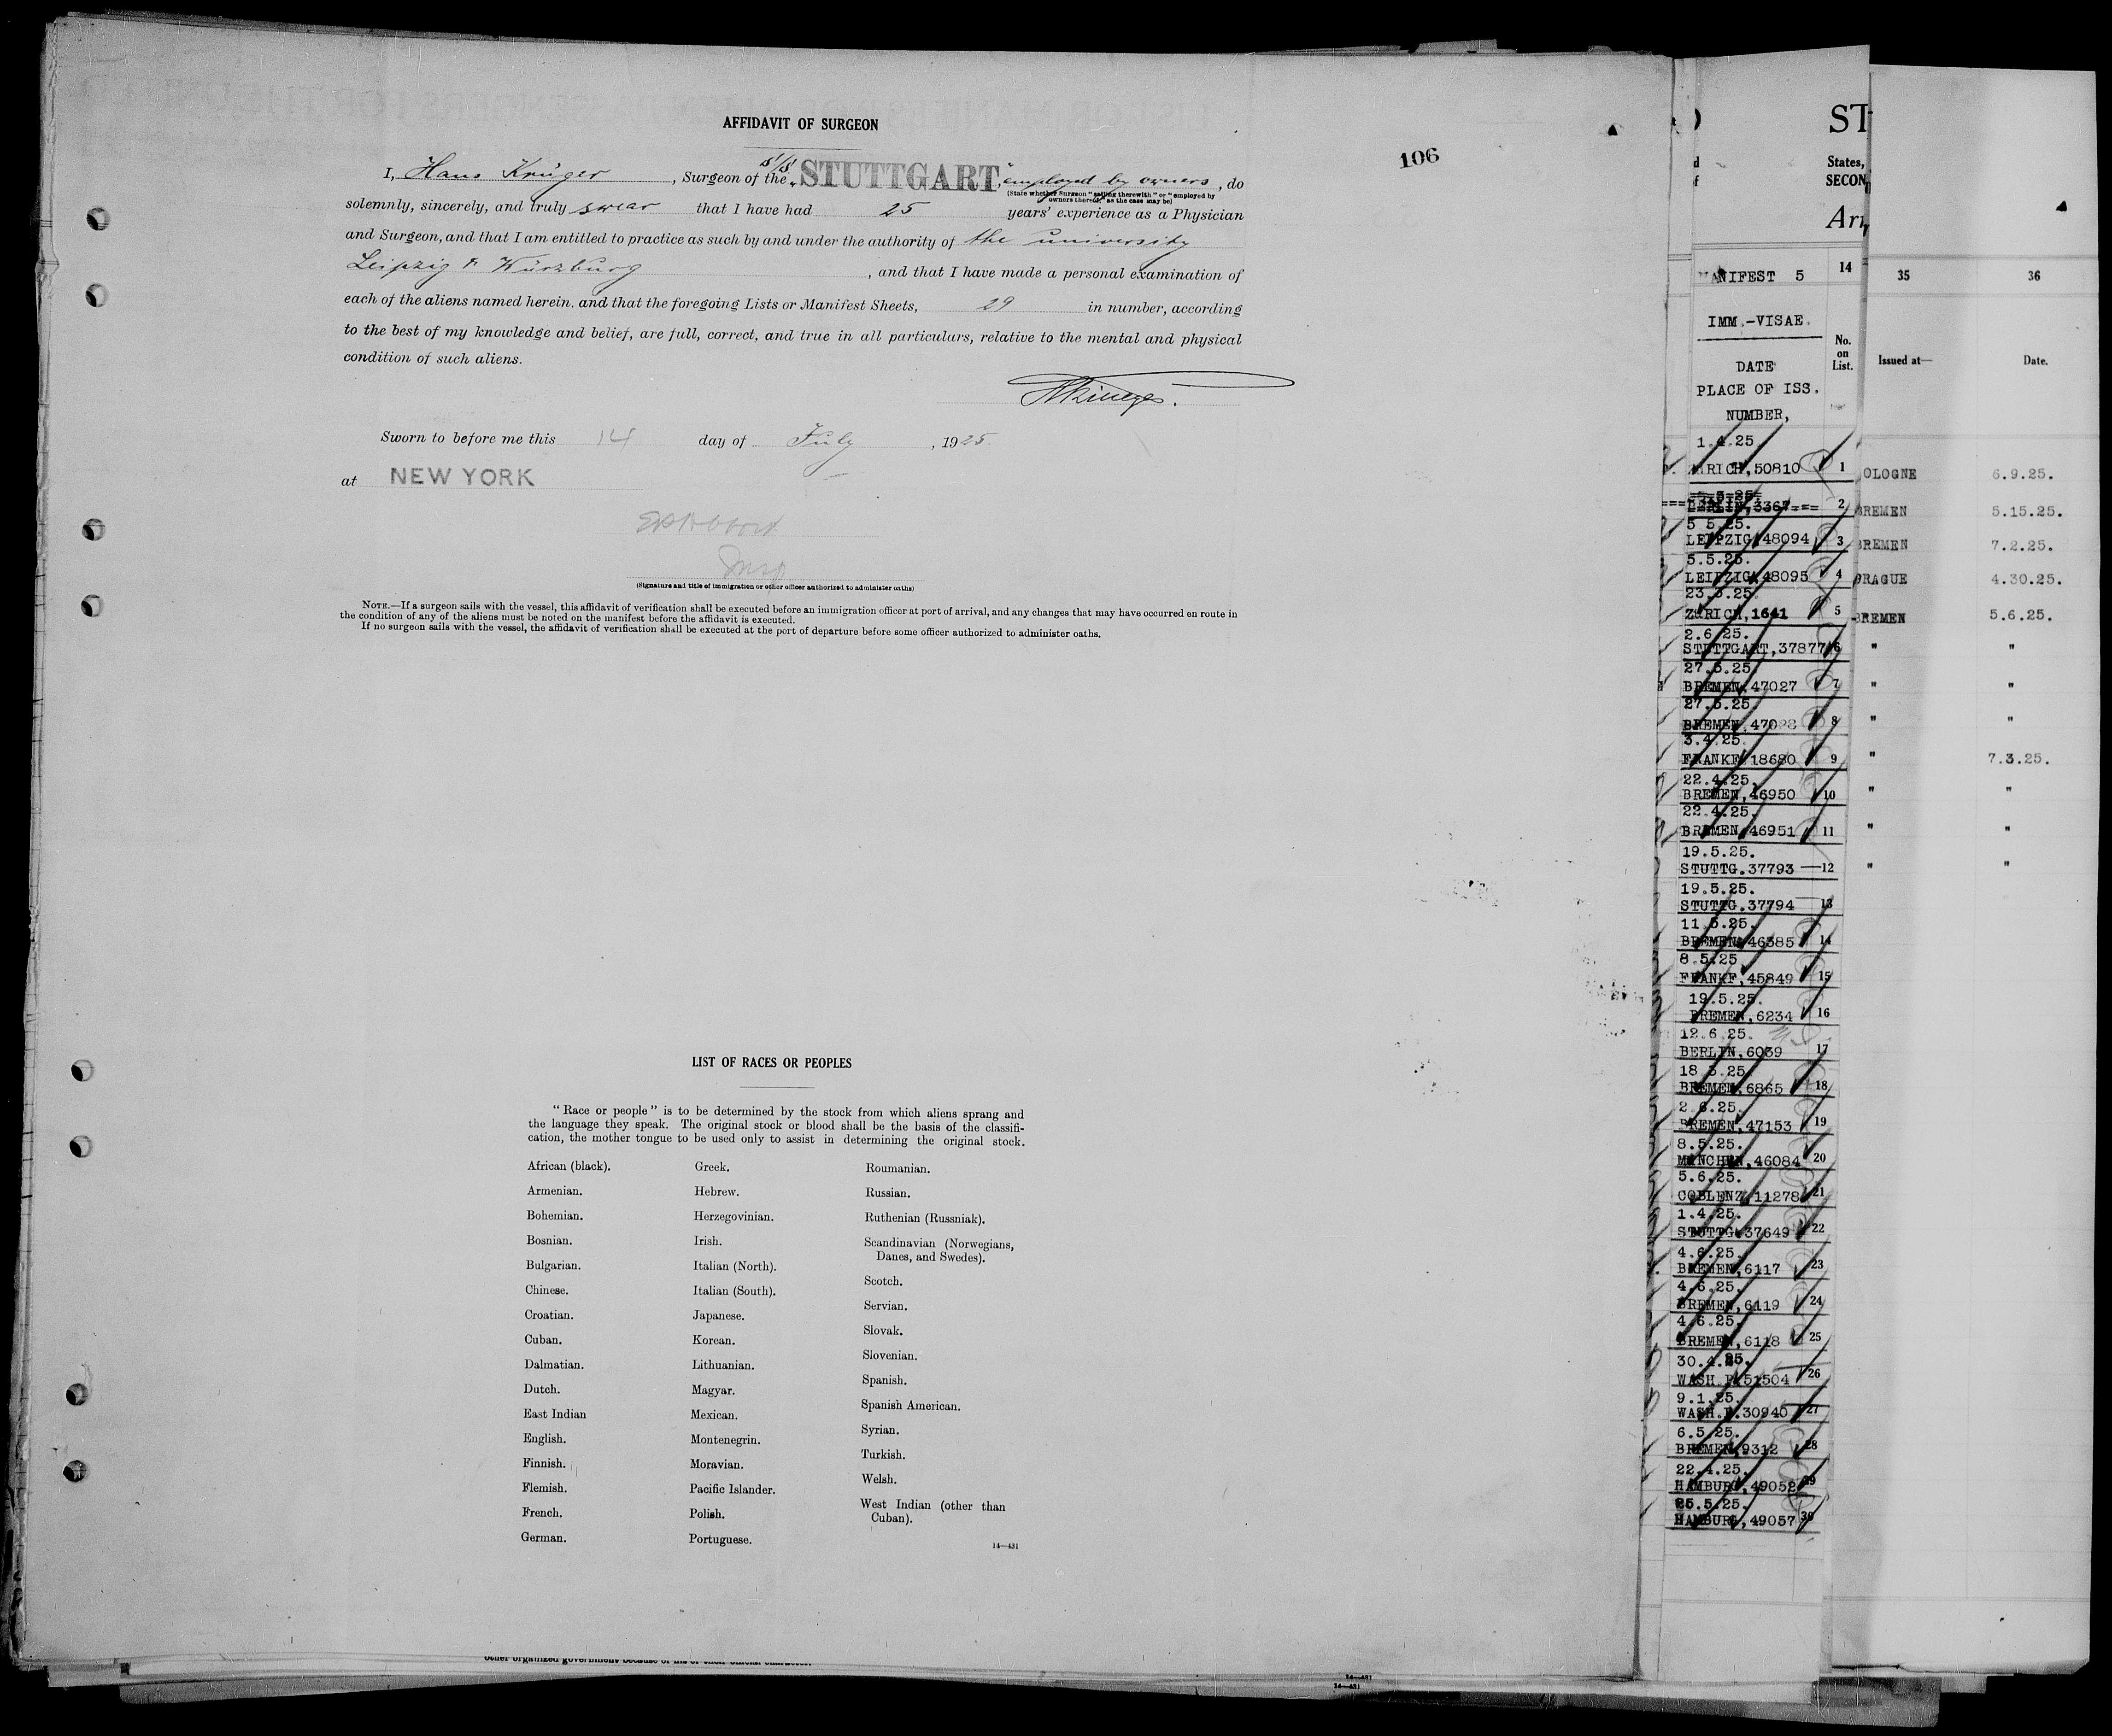 AFFIDAVIT OF SURGEON
106
I, Hans Krüger, Surgeon of the S/S "STUTTGART", employed by owners, do
(State whether Surgeon "sailing therewith" or "employed by
owners thereof," as the case may be)
solemnly, sincerely, and truly swear that I have had 25 years' experience as a Physician
and Surgeon, and that I am entitled to practice as such by and under the authority of the university
Leipzig & Würzburg, and that I have made a personal examination of
each of the aliens named herein, and that the foregoing Lists or Manifest Sheets, 29 in number, according
to the best of my knowledge and belief, are full, correct, and true in all particulars, relative to the mental and physical
condition of such aliens.
Sworn to before me this 14 day of July, 1925
at NEW YORK
Insp
(Signature and title of immigration or other officer authorized to administer oaths)
NOTE.—If a surgeon sails with the vessel, this affidavit of verification shall be executed before an immigration officer at port of arrival, and any changes that may have occurred en route in
the condition of any of the aliens must be noted on the manifest before the affidavit is executed.
If no surgeon sails with the vessel, the affidavit of verification shall be executed at the port of departure before some officer authorized to administer oaths.
LIST OF RACES OR PEOPLES
"Race or people" is to be determined by the stock from which aliens sprang and
the language they speak. The original stock or blood shall be the basis of the classifi-
cation, the mother tongue to be used only to assist in determining the original stock.
African (black).
Armenian.
Bohemian.
Bosnian.
Bulgarian.
Chinese.
Croatian.
Cuban.
Dalmatian.
Dutch.
East Indian
English.
Finnish.
Flemish.
French.
German.
Greek.
Hebrew.
Herzegovinian.
Irish.
Italian (North).
Italian (South).
Japanese.
Korean.
Lithuanian.
Magyar.
Mexican.
Montenegrin.
Moravian.
Pacific Islander.
Polish.
Portuguese.
Roumanian.
Russian.
Ruthenian (Russniak).
Scandinavian (Norwegians,
Danes, and Swedes).
Scotch.
Servian.
Slovak.
Slovenian.
Spanish.
Spanish American.
Syrian.
Turkish.
Welsh.
West Indian (other than
Cuban).
14—431
14—431
14—431
ST
States,
SECON
Arr
MANIFEST 5
14
IMM.-VISAE.
No.
on
List.
DATE
PLACE OF ISS.
NUMBER,
1.4.25
ZÜRICH, 50810 1
BERLIN, 3367 2
5.5.25.
LEIPZIG, 48094 3
5.5.25.
LEIPZIG, 48095 4
23.3.25.
ZÜRICH, 1641 5
2.6.25.
STUTTGART, 37877 6
27.5.25
BREMEN, 47027 7
27.5.25.
BREMEN, 47028 8
3.4.25.
FRANKF. 18680 9
22.4.25.
BREMEN, 46950 10
22.4.25.
BREMEN, 46951 11
19.5.25.
STUTTG. 37793 12
19.5.25.
STUTTG. 37794 13
11.5.25.
BREMEN, 46385 14
8.5.25
FRANKF, 45849 15
19.5.25.
BREMEN, 6234 16
12.6.25.
BERLIN, 6039 17
18.5.25.
BREMEN, 6865 18
2.6.25.
BREMEN, 47153 19
8.5.25.
MÜNCHEN, 46084 20
5.6.25.
COBLENZ, 11278 21
1.4.25.
STUTTG. 37649 22
4.6.25.
BREMEN, 6117 23
4.6.25.
BREMEN, 6119 24
4.6.25.
BREMEN, 6118 25
30.4.25.
WASH.P. 51504 26
9.1.25.
WASH.P. 30940 27
6.5.25.
BREMEN, 9312 28
22.4.25.
HAMBURG, 49052 29
25.5.25.
HAMBURG, 49057 30
35 36
Issued at— Date.
OLOGNE 6.9.25.
BREMEN 5.15.25.
BREMEN 7.2.25.
PRAGUE 4.30.25.
BREMEN 5.6.25.
" "
" "
" "
" 7.3.25.
" "
" "
" "